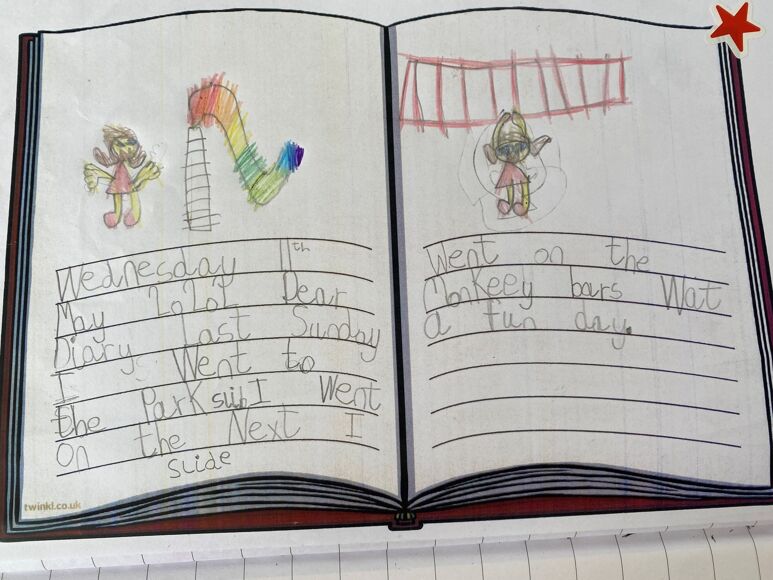 Wednesday 11th
May 2022 Dear
Diary Last Sunday
I Went to
the Park I Went
On the Next I
Slide
twinkl.co.uk
Went on the
Monkeey bars Wat
a fun day.